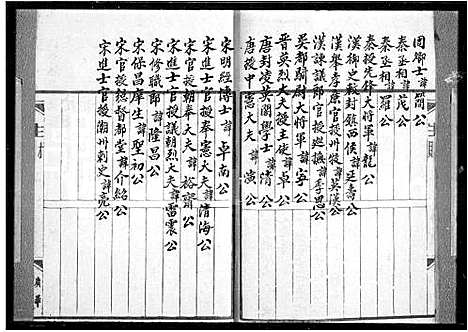 周卿士諱蕳公
秦丞相諱茂公
秦丞相諱羅公
秦授先鋒大将軍諱龍公
漢御史敕封鎮西侯諱延壽公
漢舉孝原官授州牧諱英漢公
漢諫議郎官授巡撫諱李思公
吳都騎尉大将軍諱寧公
晋英烈大夫授主使諱卓公
唐封凌英閣學士諱清公
唐授中憲大夫諱演公
宋明經博士諱卓南公
宋進士官授奉憲大夫諱清海公
宋官授朝奉大夫諱裕齋公
宋進士官授議朝烈大夫諱雷震公
宋修職郎諱隆昌公
宋保昌庠生諱聖初公
宋官授總督都堂諱介紹公
宋進士官授潮州刺史諱亮公